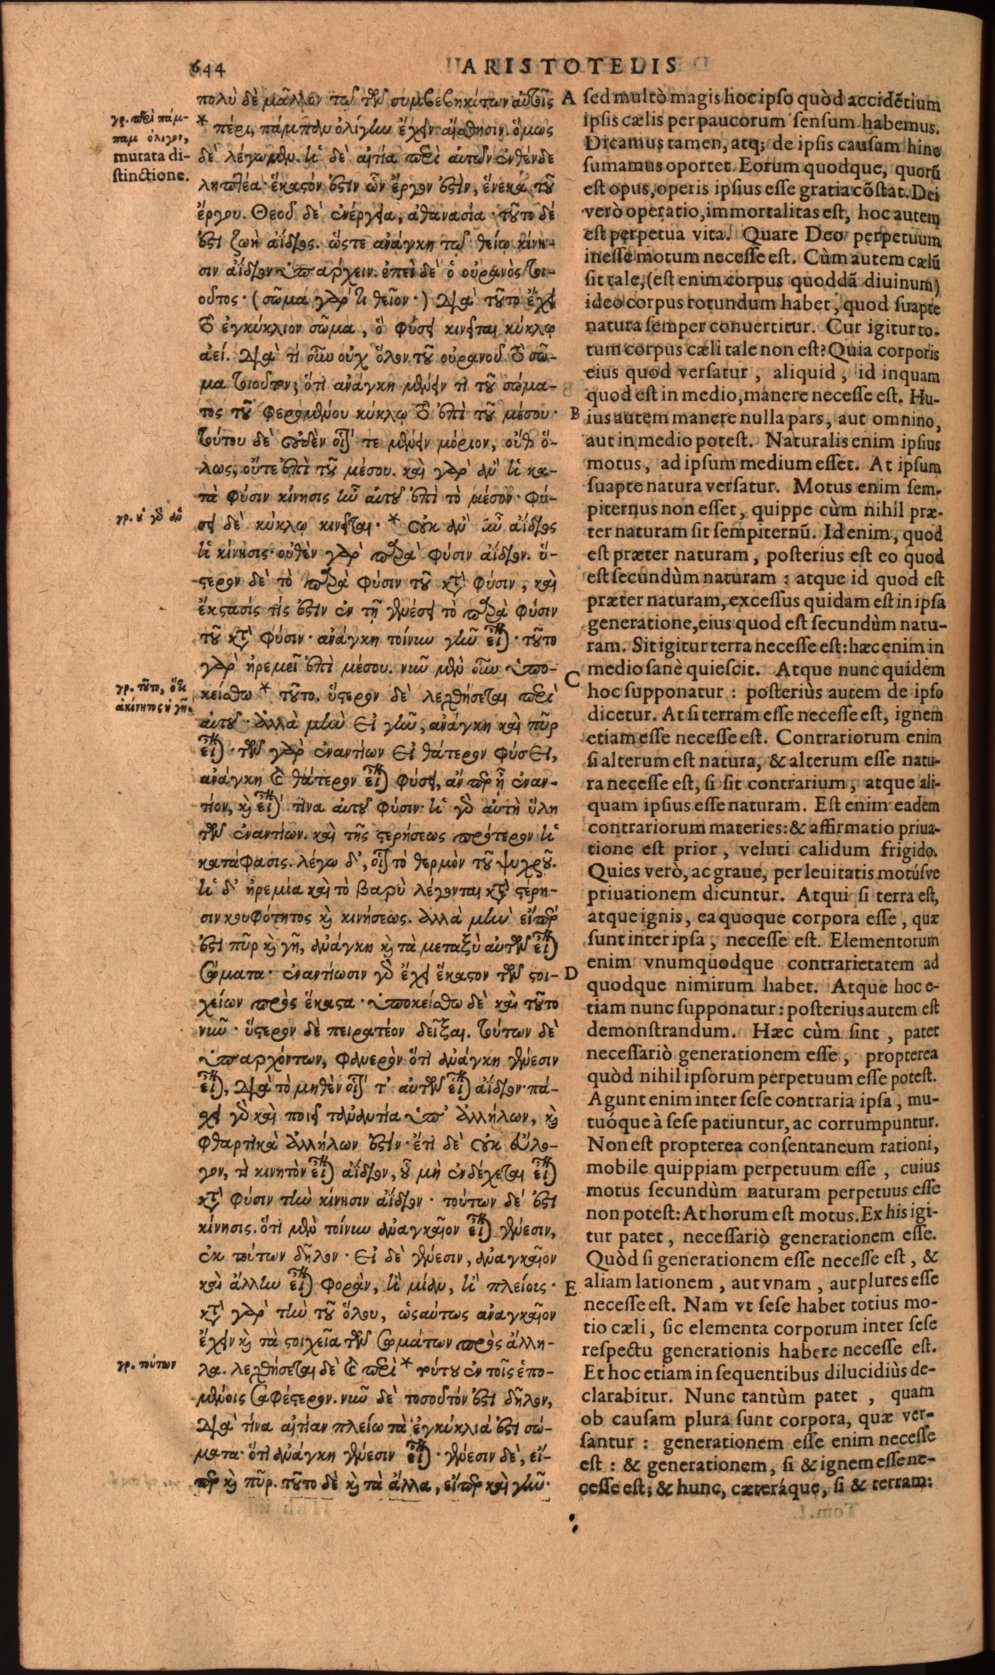 644
ARISTOTELIS
πολὺ δὲ μᾶλλον τῷ τῶν συμβεβηκότων αὐτοῖς
* πέρι, πάμπαν ὀλίγων ἔχειν αἴσθησιν. ὅμως
δὲ λέγωμεν. ἡ δὲ αἰτία περὶ αὐτῶν ἐνθένδε
ληπτέα· ἕκαστόν ἐστιν ὧν ἔργον ἐστὶν, ἕνεκα τοῦ
ἔργου. Θεοῦ δὲ ἐνέργεια, ἀθανασία· τοῦτο δέ
ἐστι ζωὴ ἀΐδιος. ὥστε ἀνάγκη τῷ θείῳ κίνη-
σιν ἀΐδιον ὑπάρχειν. ἐπεὶ δὲ ὁ οὐρανὸς τοι-
οῦτος· (σῶμα γάρ τι θεῖον·) διὰ τοῦτο ἔχει
τὸ ἐγκύκλιον σῶμα, ὃ φύσει κινεῖται κύκλῳ
ἀεί. διὰ τί οὖν οὐχ ὅλον τοῦ οὐρανοῦ τὸ σῶ-
μα τοιοῦτον; ὅτι ἀνάγκη μένειν τι τοῦ σώμα-
τος τοῦ φερομένου κύκλῳ τὸ ἐπὶ τοῦ μέσου·
τούτου δὲ οὐδὲν οἷόν τε μένειν μόριον, οὔθ' ὅ-
λως, οὔτε ἐπὶ τοῦ μέσου. καὶ γὰρ ἂν ἡ κα-
τὰ φύσιν κίνησις ἦν αὐτοῦ ἐπὶ τὸ μέσον· φύ-
σει δὲ κύκλῳ κινεῖται· * οὐκ ἂν ἦν ἀΐδιος
ἡ κίνησις· οὐθὲν γὰρ παρὰ φύσιν ἀΐδιον. ὕ-
στερον δὲ τὸ παρὰ φύσιν τοῦ κατὰ φύσιν, καὶ
ἔκστασίς τίς ἐστιν ἐν τῇ γενέσει τὸ παρὰ φύσιν
τοῦ κατὰ φύσιν· ἀνάγκη τοίνυν γῆν εἶναι· τοῦτο
γὰρ ἠρεμεῖ ἐπὶ μέσου. νῦν μὲν οὖν ὑπο-
κείσθω * τοῦτο. ὕστερον δὲ λεχθήσεται περὶ
αὐτοῦ· ἀλλὰ μὴν εἰ γῆν, ἀνάγκη καὶ πῦρ
εἶναι· τῶν γὰρ ἐναντίων εἰ θάτερον φύσει,
ἀνάγκη καὶ θάτερον εἶναι φύσει, ἄν περ ᾖ ἐναν-
τίον, καὶ εἶναί τινα αὐτοῦ φύσιν· ἡ γὰρ αὐτὴ ὕλη
τῶν ἐναντίων. καὶ τῆς στερήσεως πρότερον ἡ
κατάφασις. λέγω δ', οἷον τὸ θερμὸν τοῦ ψυχροῦ.
ἡ δ' ἠρεμία καὶ τὸ βαρὺ λέγονται κατὰ στέρη-
σιν κουφότητος καὶ κινήσεως. ἀλλὰ μὴν εἴπερ
ἐστὶ πῦρ καὶ γῆ, ἀνάγκη καὶ τὰ μεταξὺ αὐτῶν εἶναι
σώματα· ἐναντίωσιν γὰρ ἔχει ἕκαστον τῶν στοι-
χείων πρὸς ἕκαστα· ὑποκείσθω δὲ καὶ τοῦτο
νῦν· ὕστερον δὲ πειρατέον δεῖξαι. τούτων δὲ
ὑπαρχόντων, φανερὸν ὅτι ἀνάγκη γένεσιν
εἶναι, διὰ τὸ μηθὲν οἷόν τ' αὐτῶν εἶναι ἀΐδιον· πά-
σχει γὰρ καὶ ποιεῖ τἀναντία ὑπ' ἀλλήλων, καὶ
φθαρτικὰ ἀλλήλων ἐστίν· ἔτι δὲ οὐκ εὔλο-
γον, τὶ κινητὸν εἶναι ἀΐδιον, οὗ μὴ ἐνδέχεται εἶναι
κατὰ φύσιν τὴν κίνησιν ἀΐδιον· τούτων δέ ἐστι
κίνησις. ὅτι μὲν τοίνυν ἀναγκαῖον εἶναι γένεσιν,
ἐκ τούτων δῆλον· εἰ δὲ γένεσιν, ἀναγκαῖον
καὶ ἄλλην εἶναι φορὰν, ἢ μίαν, ἢ πλείους·
κατὰ γὰρ τὴν τοῦ ὅλου, ὡσαύτως ἀναγκαῖον
ἔχειν καὶ τὰ στοιχεῖα τῶν σωμάτων πρὸς ἄλλη-
λα. λεχθήσεται δὲ καὶ περὶ * τούτου ἐν τοῖς ἑπο-
μένοις σαφέστερον. νῦν δὲ τοσοῦτόν ἐστι δῆλον,
διὰ τίνα αἰτίαν πλείω τὰ ἐγκύκλιά ἐστι σώ-
ματα· ὅτι ἀνάγκη γένεσιν εἶναι· γένεσιν δὲ, εἴ-
περ καὶ πῦρ. τοῦτο δὲ καὶ τὰ ἄλλα, εἴπερ καὶ γῆν·
γρ. περὶ πάμ-
παν ὀλίγον,
mutata di-
stinctione.
γρ. ἡ γὰρ ἂν
γρ. τοῦτο, ὅτι
ἀκίνητος ἡ γῆ.
γρ. τούτων
A
B
C
D
E
sed multò magis hoc ipso quòd accidẽtium
ipsis cælis per paucorum sensum habemus.
Dicamus tamen, atq; de ipsis causam hinc
sumamus oportet. Eorum quodque, quorũ
est opus, operis ipsius esse gratia cõstat. Dei
verò operatio, immortalitas est, hoc autem
est perpetua vita. Quare Deo perpetuum
inesse motum necesse est. Cùm autem cælũ
sit tale, (est enim corpus quoddã diuinum)
ideo corpus rotundum habet, quod suapte
natura semper conuertitur. Cur igitur to-
tum corpus cæli tale non est? Quia corporis
eius quod versatur, aliquid, id inquam
quod est in medio, manere necesse est. Hu-
ius autem manere nulla pars, aut omnino,
aut in medio potest. Naturalis enim ipsius
motus, ad ipsum medium esset. At ipsum
suapte natura versatur. Motus enim sem-
piternus non esset, quippe cùm nihil præ-
ter naturam sit sempiternũ. Id enim, quod
est præter naturam, posterius est eo quod
est secundùm naturam: atque id quod est
præter naturam, excessus quidam est in ipsa
generatione, eius quod est secundùm natu-
ram. Sit igitur terra necesse est: hæc enim in
medio sanè quiescit. Atque nunc quidem
hoc supponatur: posteriùs autem de ipso
dicetur. At si terram esse necesse est, ignem
etiam esse necesse est. Contrariorum enim
si alterum est natura, & alterum esse natu-
ra necesse est, si sit contrarium, atque ali-
quam ipsius esse naturam. Est enim eadem
contrariorum materies: & affirmatio priua-
tione est prior, veluti calidum frigido.
Quies verò, ac graue, per leuitatis motúsve
priuationem dicuntur. Atqui si terra est,
atque ignis, ea quoque corpora esse, quæ
sunt inter ipsa, necesse est. Elementorum
enim vnumquodque contrarietatem ad
quodque nimirum habet. Atque hoc e-
tiam nunc supponatur: posterius autem est
demonstrandum. Hæc cùm sint, patet
necessariò generationem esse, propterea
quòd nihil ipsorum perpetuum esse potest.
Agunt enim inter sese contraria ipsa, mu-
tuóque à sese patiuntur, ac corrumpuntur.
Non est propterea consentaneum rationi,
mobile quippiam perpetuum esse, cuius
motus secundùm naturam perpetuus esse
non potest: At horum est motus. Ex his igi-
tur patet, necessariò generationem esse.
Quòd si generationem esse necesse est, &
aliam lationem, aut vnam, aut plures esse
necesse est. Nam vt sese habet totius mo-
tio cæli, sic elementa corporum inter sese
respectu generationis habere necesse est.
Et hoc etiam in sequentibus dilucidiùs de-
clarabitur. Nunc tantùm patet, quam
ob causam plura sunt corpora, quæ ver-
santur: generationem esse enim necesse
est: & generationem, si & ignem esse ne-
cesse est; & hunc, cæteráque, si & terram: